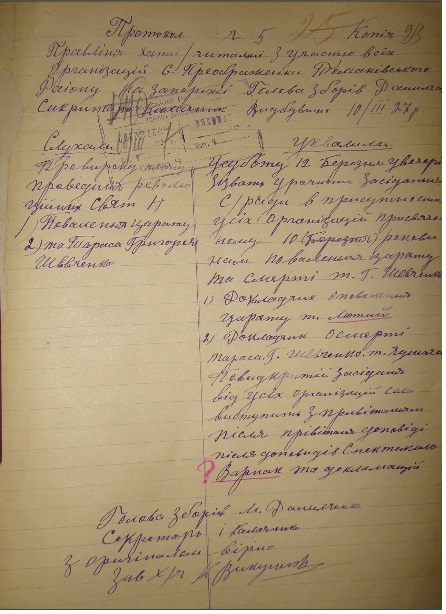 Протокол ч 5 Копія
Правління хати/читальні з участю всіх
Організацій с. Преображенки Томаківського
Району на Запоріжжі Голова зборів Данильч
Секретарь Калашник Відбувши 10/III 27 р.
Слухали
Про
проведення револю
ційних Свят
1) Повалення царату
2) та Тараса Григоров
Шевченко
Ухвалили
У суботу 12 березня увечері
Звать урочисте засідання
С/ради в присутности
усіх Організацій присвяче
ному 10 (березня) рокови
нам повалення царату
та смерті т. Г. Шевченк
1) Докладчик
царату т. Лютий
2) Докладчик о смерті
Тараса. Г. Шевченко. т.
засідання
від усіх організацій села
виступить з привітанням
Після привітання доповіді
після доповідів Спектакль
? Варнак та декламацій
Голова Зборів М. Данильченко
Секретарь і Калашник
З оригіналом вірно
Зав х/ч